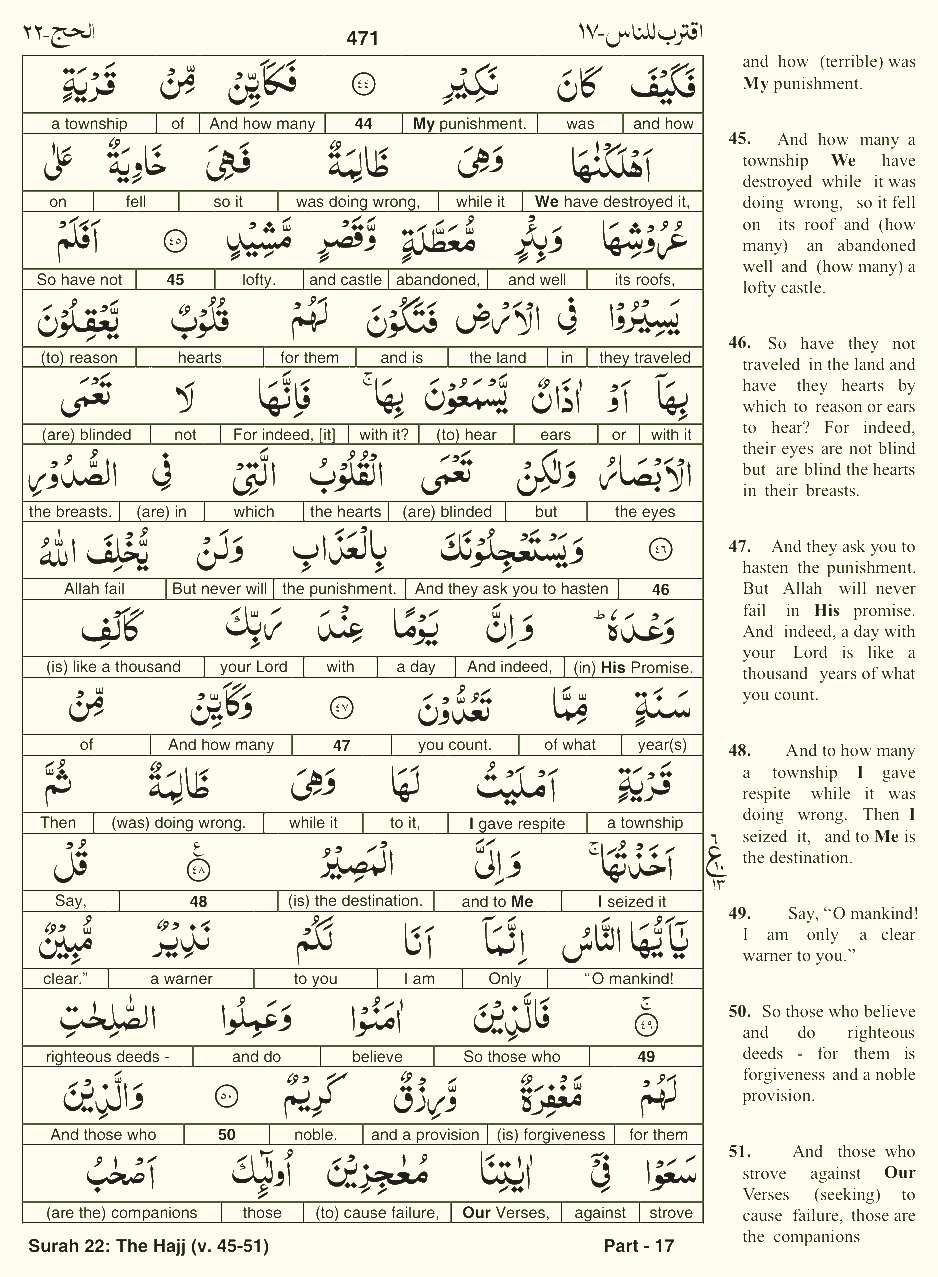 الحج-٢٢
471
اقترب للناس-١٧
فَكَيْفَ كَانَ نَكِيْرِ ﴿٤٤﴾ فَكَاَيِّنْ مِّنْ قَرْيَةٍ
and how | was | My punishment. | 44 | And how many | of | a township
اَهْلَكْنٰهَا وَهِيَ ظَالِمَةٌ فَهِيَ خَاوِيَةٌ عَلٰى
We have destroyed it, | while it | was doing wrong, | so it | fell | on
عُرُوْشِهَا وَبِئْرٍ مُّعَطَّلَةٍ وَّقَصْرٍ مَّشِيْدٍ ﴿٤٥﴾ اَفَلَمْ
its roofs, | and well | abandoned, | and castle | lofty. | 45 | So have not
يَسِيْرُوْا فِي الْاَرْضِ فَتَكُوْنَ لَهُمْ قُلُوْبٌ يَّعْقِلُوْنَ
they traveled | in | the land | and is | for them | hearts | (to) reason
بِهَاۤ اَوْ اٰذَانٌ يَّسْمَعُوْنَ بِهَاۚ فَاِنَّهَا لَا تَعْمَى
with it | or | ears | (to) hear | with it? | For indeed, [it] | not | (are) blinded
الْاَبْصَارُ وَلٰكِنْ تَعْمَى الْقُلُوْبُ الَّتِيْ فِي الصُّدُوْرِ
the eyes | but | (are) blinded | the hearts | which | (are) in | the breasts.
﴿٤٦﴾ وَيَسْتَعْجِلُوْنَكَ بِالْعَذَابِ وَلَنْ يُّخْلِفَ اللّٰهُ
46 | And they ask you to hasten | the punishment. | But never will | Allah fail
وَعْدَهٗؕ وَاِنَّ يَوْمًا عِنْدَ رَبِّكَ كَاَلْفِ
(in) His Promise. | And indeed, | a day | with | your Lord | (is) like a thousand
سَنَةٍ مِّمَّا تَعُدُّوْنَ ﴿٤٧﴾ وَكَاَيِّنْ مِّنْ
year(s) | of what | you count. | 47 | And how many | of
قَرْيَةٍ اَمْلَيْتُ لَهَا وَهِيَ ظَالِمَةٌ ثُمَّ
a township | I gave respite | to it, | while it | (was) doing wrong. | Then
اَخَذْتُهَاۚ وَاِلَيَّ الْمَصِيْرُ ﴿٤٨﴾ قُلْ
I seized it | and to Me | (is) the destination. | 48 | Say,
يٰۤاَيُّهَا النَّاسُ اِنَّمَاۤ اَنَا لَكُمْ نَذِيْرٌ مُّبِيْنٌ
“O mankind! | Only | I am | to you | a warner | clear.”
﴿٤٩﴾ فَالَّذِيْنَ اٰمَنُوْا وَعَمِلُوا الصّٰلِحٰتِ
49 | So those who | believe | and do | righteous deeds -
لَهُمْ مَّغْفِرَةٌ وَّرِزْقٌ كَرِيْمٌ ﴿٥٠﴾ وَالَّذِيْنَ
for them | (is) forgiveness | and a provision | noble. | 50 | And those who
سَعَوْا فِيْۤ اٰيٰتِنَا مُعٰجِزِيْنَ اُولٰٓئِكَ اَصْحٰبُ
strove | against | Our Verses, | (to) cause failure, | those | (are the) companions
and how (terrible) was
My punishment.
45. And how many a
township We have
destroyed while it was
doing wrong, so it fell
on its roof and (how
many) an abandoned
well and (how many) a
lofty castle.
46. So have they not
traveled in the land and
have they hearts by
which to reason or ears
to hear? For indeed,
their eyes are not blind
but are blind the hearts
in their breasts.
47. And they ask you to
hasten the punishment.
But Allah will never
fail in His promise.
And indeed, a day with
your Lord is like a
thousand years of what
you count.
48. And to how many
a township I gave
respite while it was
doing wrong. Then I
seized it, and to Me is
the destination.
49. Say, “O mankind!
I am only a clear
warner to you.”
50. So those who believe
and do righteous
deeds - for them is
forgiveness and a noble
provision.
51. And those who
strove against Our
Verses (seeking) to
cause failure, those are
the companions
٦
ع
١٠
١٣
Surah 22: The Hajj (v. 45-51)
Part - 17